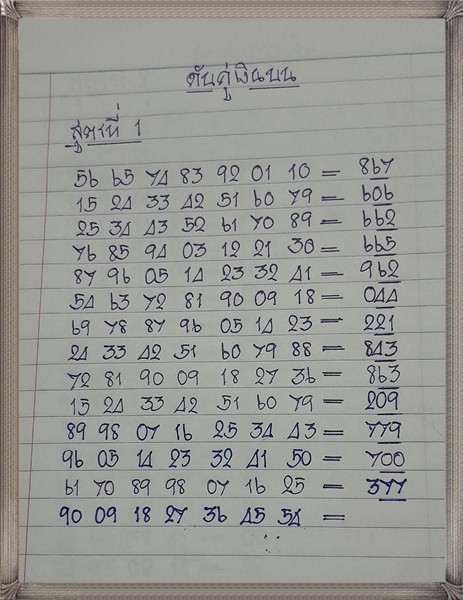 ดับคู่เงินบน
สูตรที่ 1
56 65 74 83 92 01 10 = 867
15 24 33 42 51 60 79 = 606
25 34 43 52 61 70 89 = 662
76 85 94 03 12 21 30 = 665
87 96 05 14 23 32 41 = 962
54 63 72 81 90 09 18 = 044
69 78 87 96 05 14 23 = 221
24 33 42 51 60 79 88 = 843
72 81 90 09 18 27 36 = 863
15 24 33 42 51 60 79 = 209
89 98 07 16 25 34 43 = 779
96 05 14 23 32 41 50 = 700
61 70 89 98 07 16 25 = 377
90 09 18 27 36 45 54 =